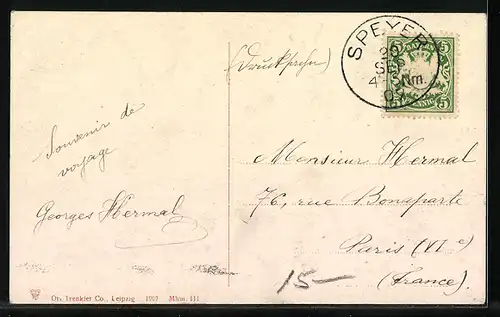 (Drucksache)
SPEYER
Nm.
5
5
Souvenir de
voyage
Georges Hermal
Monsieur Hermal
76, rue Bonaparte
Paris (VIe)
(France).
15-
Ottmar Trenkler Co., Leipzig 1907 Mhm. 111